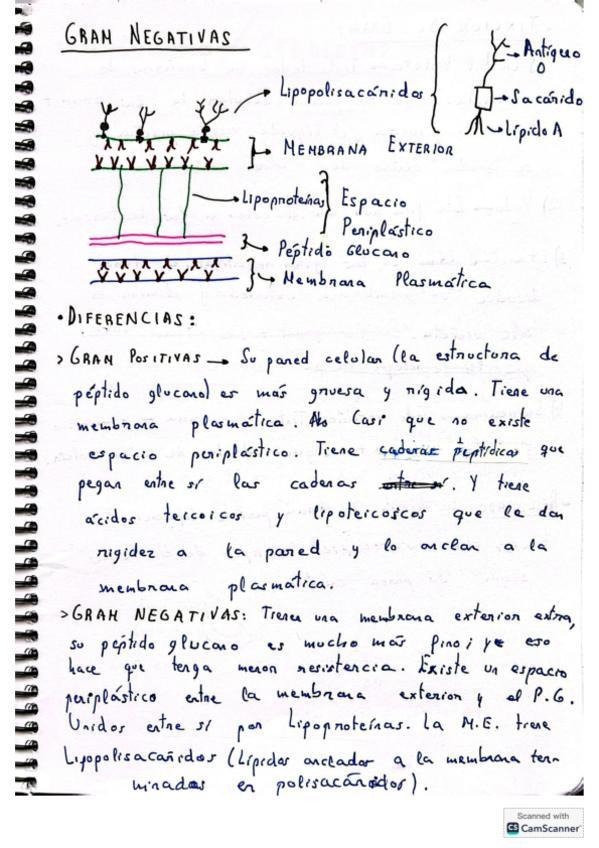 GRAM NEGATIVAS
Lipopolisacáridos
Antígeno
O
Sacárido
Lípido A
MEMBRANA EXTERIOR
Lipoproteínas
Espacio
Periplástico
Péptido Glucano
Membrana Plasmática
• DIFERENCIAS:
> GRAM POSITIVAS → Su pared celular (la estructura de
péptido glucano) es más gruesa y rígida. Tiene una
membrana plasmática. Casi que no existe
espacio periplástico. Tiene cadenas peptídicas que
pegan entre sí las cadenas entre sí. Y tiene
ácidos teicoicos y lipoteicoicos que le dan
rigidez a la pared y lo anclan a la
membrana plasmática.
> GRAM NEGATIVAS: Tienen una membrana exterior extra,
su péptido glucano es mucho más fino y eso
hace que tenga menor resistencia. Existe un espacio
periplástico entre la membrana exterior y el P.G.
Unidos entre sí por Lipoproteínas. La M.E. tiene
Lipopolisacáridos (Lípidos anclados a la membrana ter-
minados en polisacáridos).
Scanned with
CS CamScanner